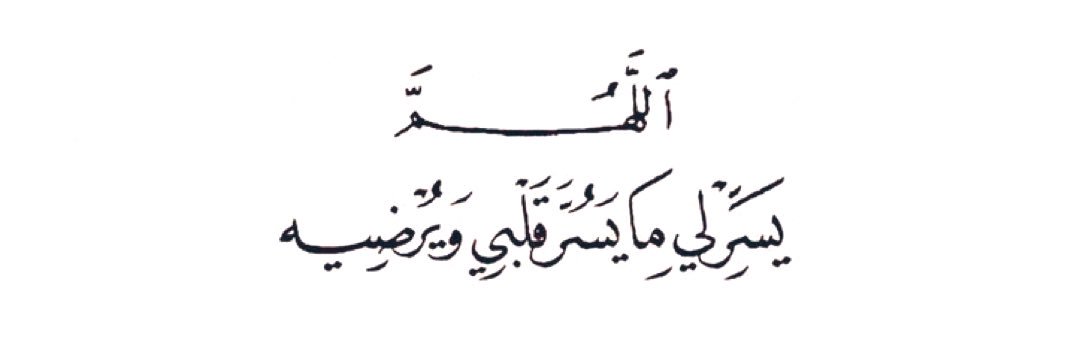 ٱللَّهُمَّ
يَسِّرْ لي مِا يَسُرَّ قَلْبِي وَيُرْضِيه